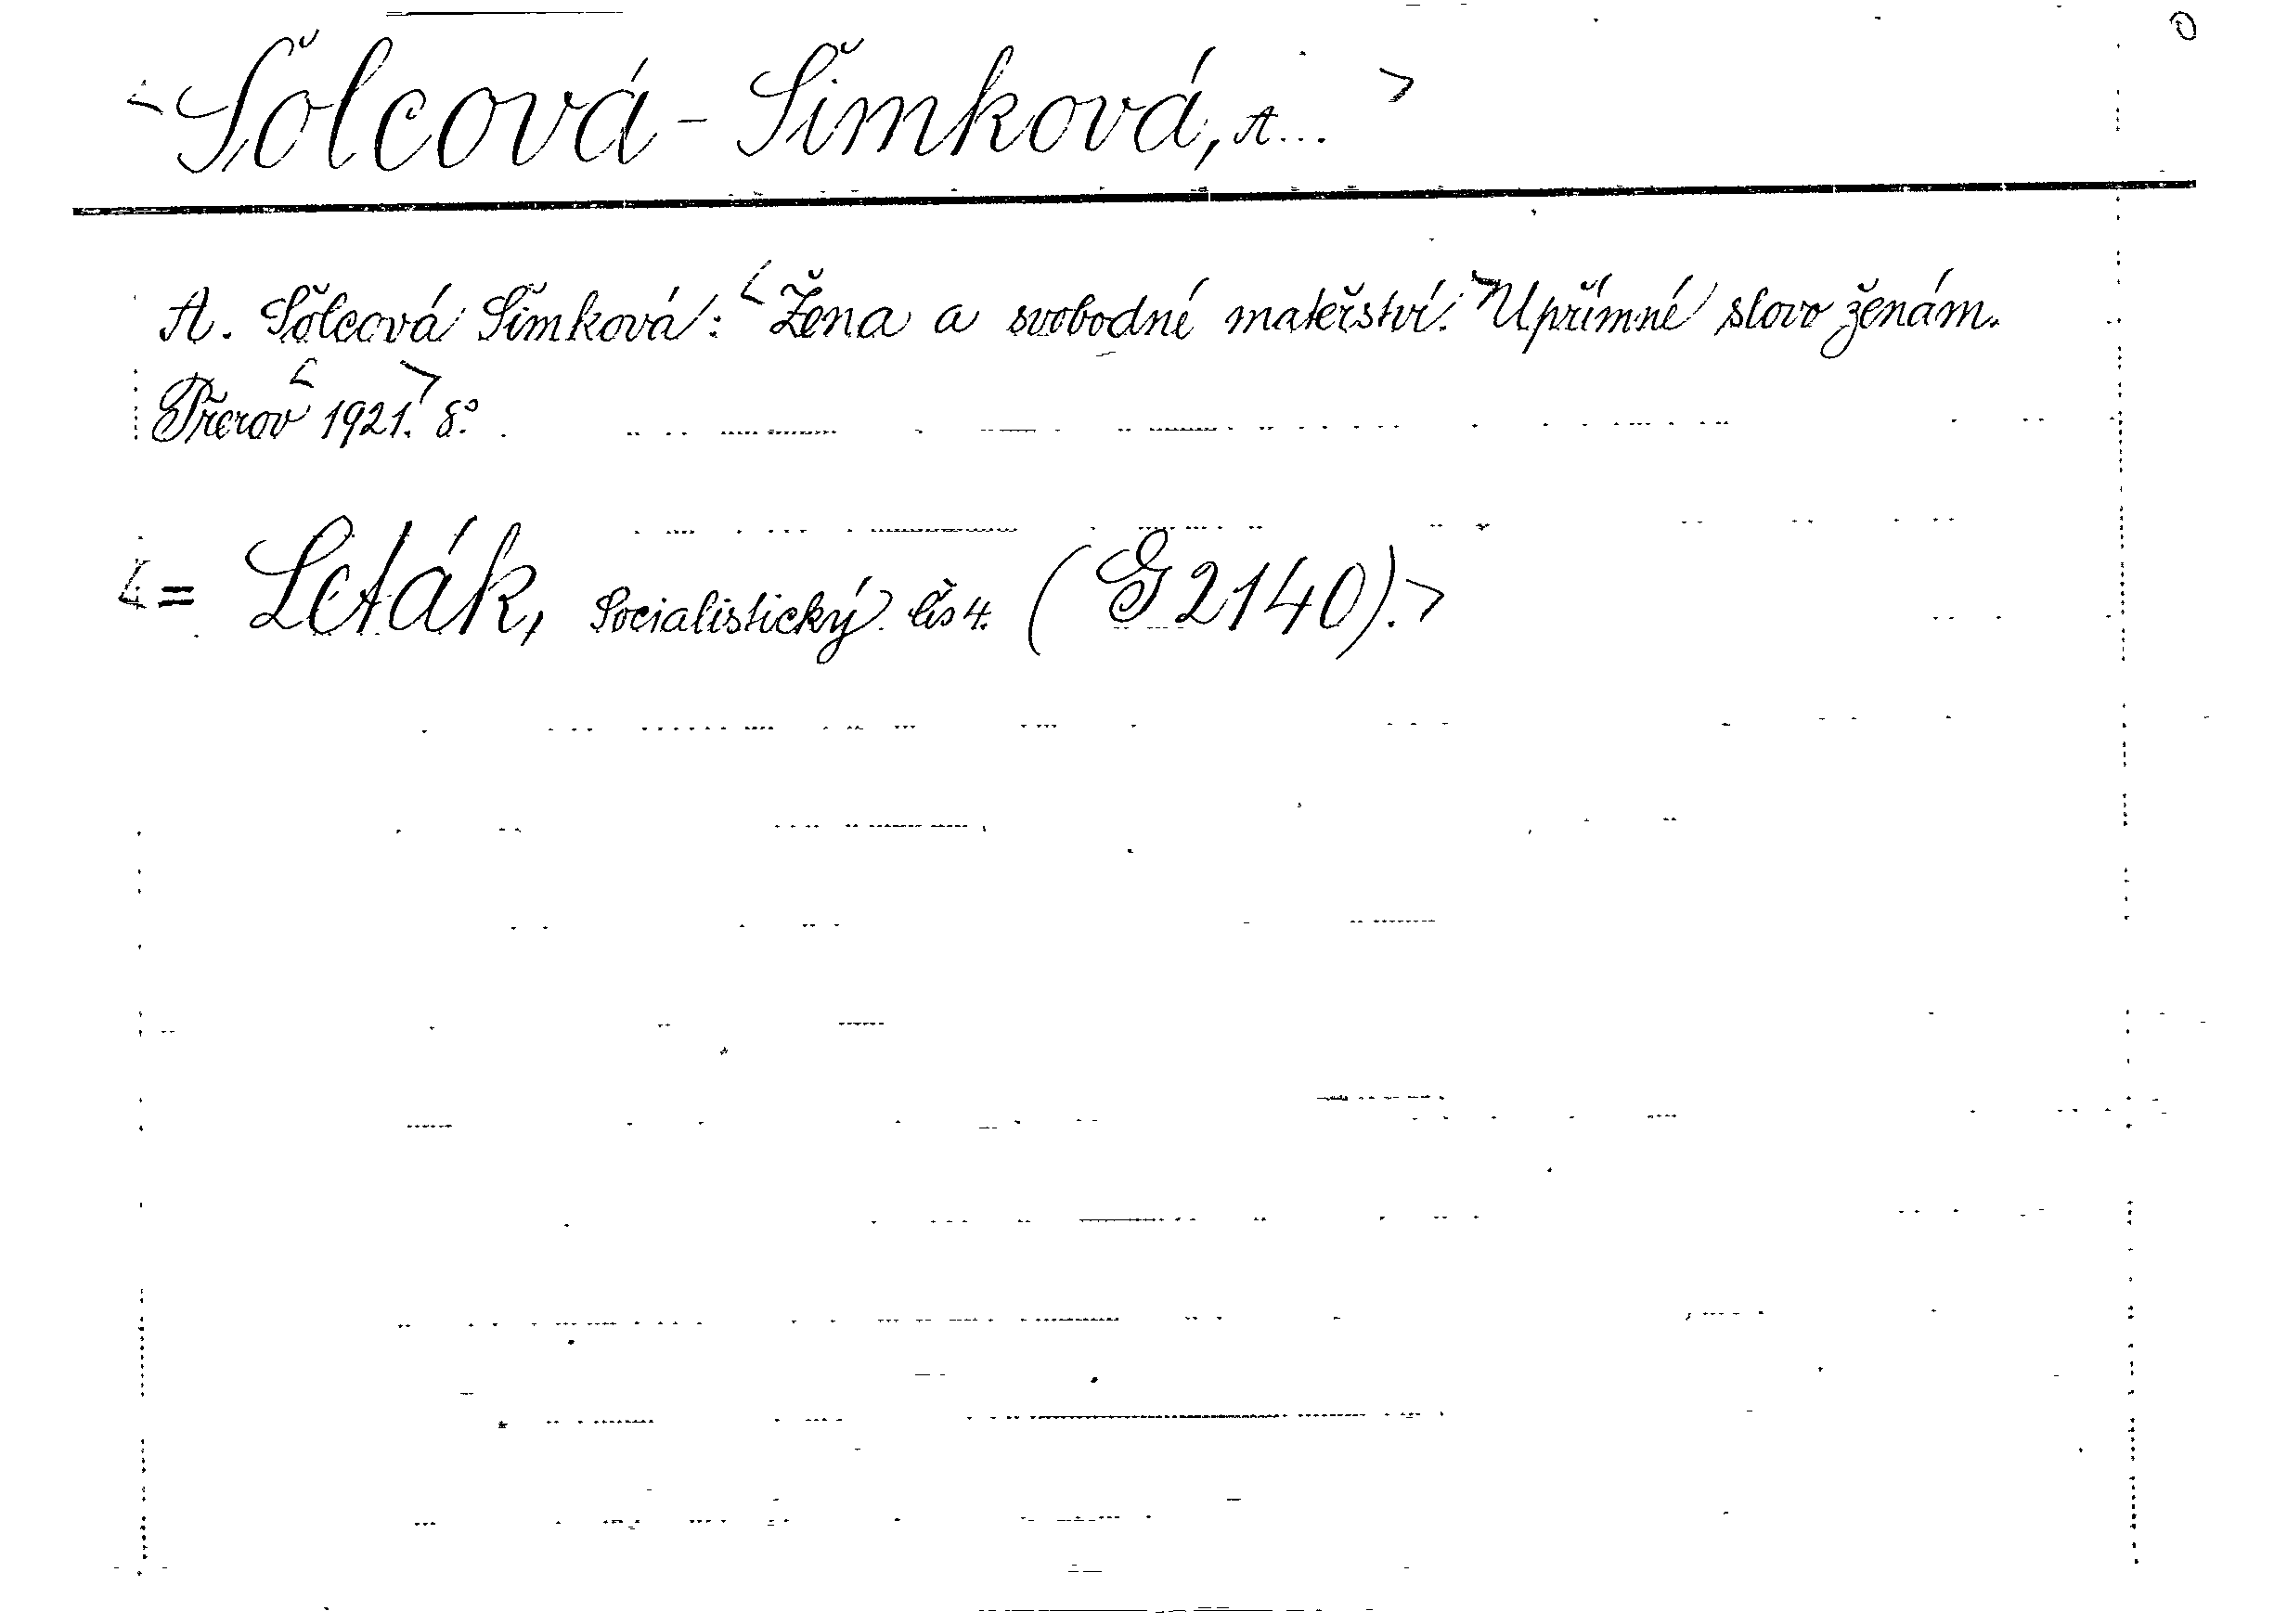 <Šolcová - Šimková, A... >
A. Šolcová Šimková: <Žena a svobodné mateřství.> Upřímné slovo ženám.
Přerov <1921.> 8°.
<= Leták, Socialistický čís 4. (G 2140).>